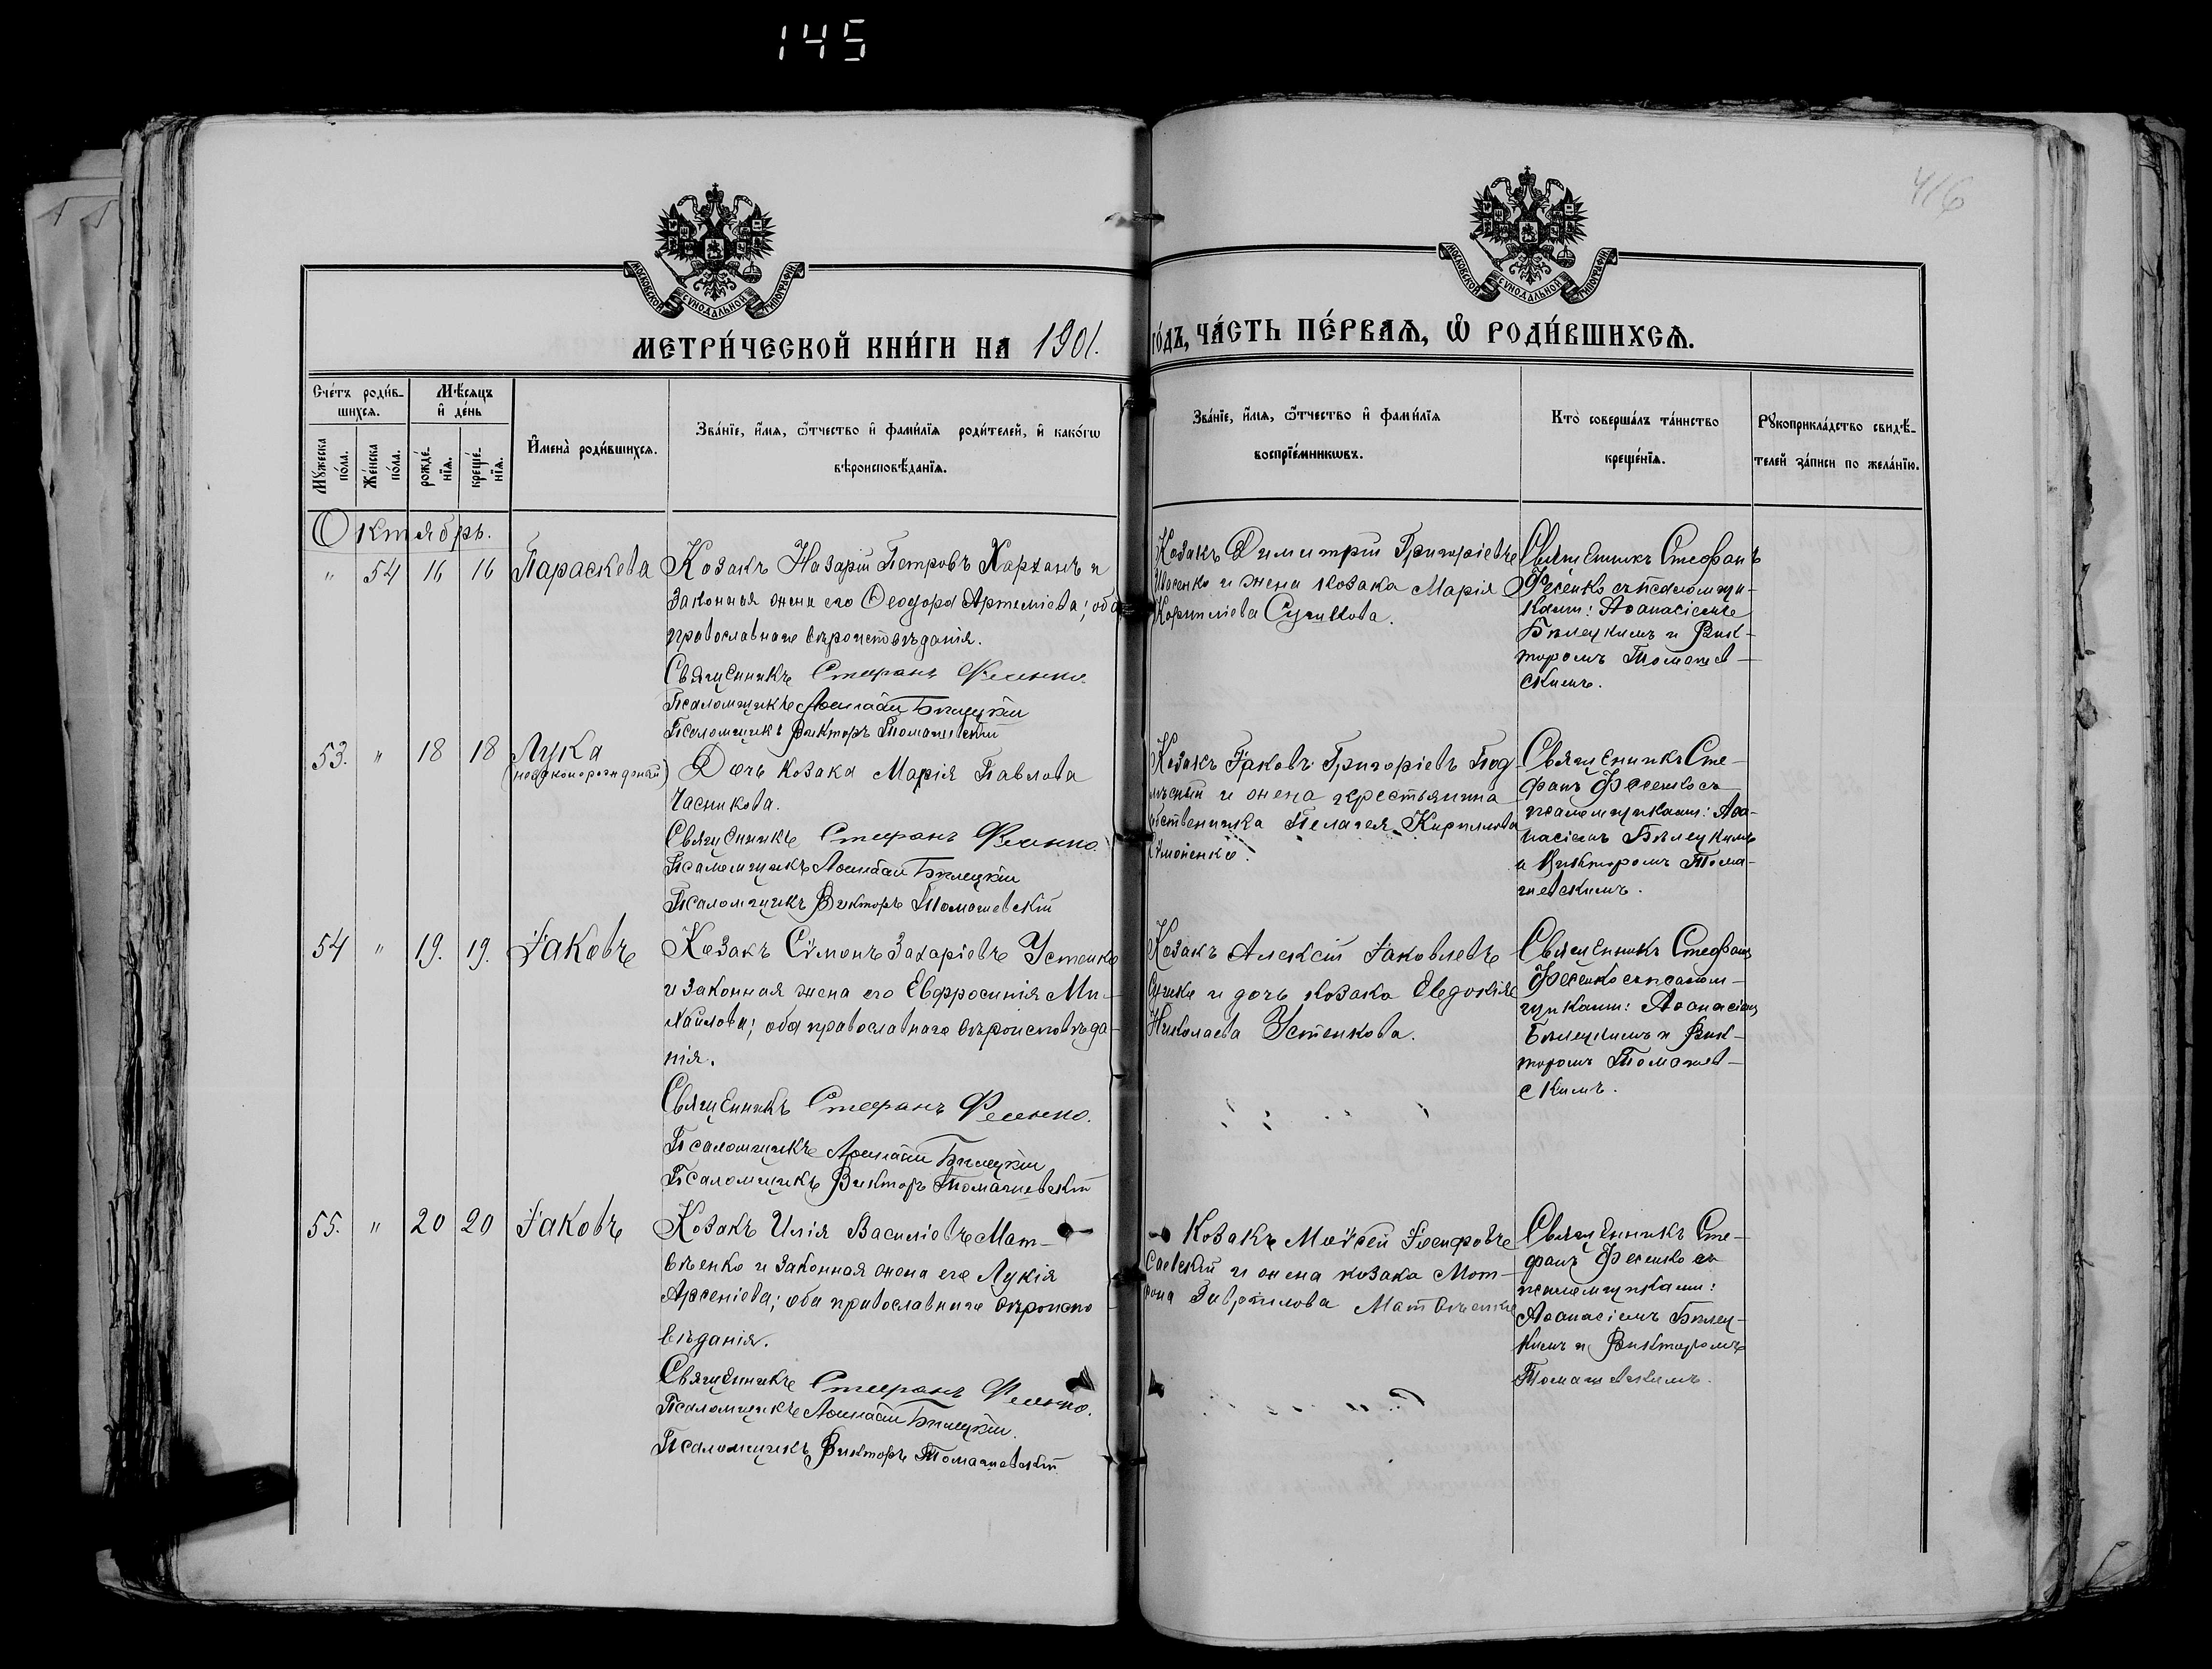 145
416
МОСКОВСКОЙ СѴНОДАЛЬНОЙ ТИПОГРАФІИ
МОСКОВСКОЙ СѴНОДАЛЬНОЙ ТИПОГРАФІИ
МЕТРИ́ЧЕСКОЙ КНИ́ГИ НА 1901. ГО́ДЪ, ЧА́СТЬ ПЕ́РВАѦ, Ѡ҆ РОДИ́ВШИХСѦ.
Сче́тъ роди́в-
шихсѧ.
Мꙋ́жеска по́ла.
Же́нска по́ла.
Мѣ́сѧцъ
и҆ де́нь
рожде́-
нїѧ.
креще́-
нїѧ.
И҆мена̀ роди́вшихсѧ.
Зва́нїе, и҆́мѧ, ѻ҆́тчество и҆ фами́лїѧ роди́телей, и҆ како́гѡ
вѣроисповѣ́данїѧ.
Зва́нїе, и҆́мѧ, ѻ҆́тчество и҆ фами́лїѧ
воспрїе́мникѡвъ.
Кто̀ соверша́лъ та́инство
креще́нїѧ.
Рꙋкоприкла́дство свидѣ́-
телей за́писи по жела́нїю.
Октябрь.
" 54 16 16 Параскева
Козакъ Назарій Петровъ Харханъ и
законная жена его Ѳеодора Артеміева; оба
православнаго вѣроисповѣданія.
Священникъ Стефанъ Фесенко.
Псаломщикъ Аѳанасій Бѣлецкій
Псаломщикъ Викторъ Томашевскій
Козакъ Димитрій Григоріевъ
и жена козака Марія
Корниліева
Священникъ Стефанъ
Фесенко съ псаломщи-
ками: Аѳанасіемъ
Бѣлецкимъ и Вик-
торомъ Томашев-
скимъ.
53. " 18 18 Лука
(незаконорожденный)
Дочь козака Марія Павлова
Часникова.
Священникъ Стефанъ Фесенко.
Псаломщикъ Аѳанасій Бѣлецкій
Псаломщикъ Викторъ Томашевскій
Козакъ Іаковъ Григоріевъ Под-
лѣсный и жена крестьянина
собственника Пелагея Кириллова
Сѵмоненко.
Священникъ Сте-
фанъ Фесенко съ
псаломщиками: Аѳа-
насіемъ Бѣлецкимъ
и Викторомъ Тома-
шевскимъ.
54 " 19. 19. Іаковъ
Козакъ Сѵмонъ Захаріевъ Устенко
и законная жена его Евфросинія Ми-
хайлова; оба православнаго вѣроисповѣда-
нія.
Священникъ Стефанъ Фесенко.
Псаломщикъ Аѳанасій Бѣлецкій
Псаломщикъ Викторъ Томашевскій
Козакъ Алексій Іаковлевъ
и дочь козака Евдокія
Николаева Устенкова.
Священникъ Стефанъ
Фесенко съ псалом-
щиками: Аѳанасіемъ
Бѣлецкимъ и Вик-
торомъ Томашев-
скимъ.
55. " 20 20 Іаковъ
Козакъ Илія Василіевъ Мат-
вѣенко и законная жена его Лукія
Арсеніева; оба православнаго вѣроиспо-
вѣданія.
Священникъ Стефанъ Фесенко.
Псаломщикъ Аѳанасій Бѣлецкій.
Псаломщикъ Викторъ Томашевскій
Козакъ Моѵсей Іосифовъ
Саевскій и жена козака Мот-
рона Гавриилова Матвѣенко
Священникъ Сте-
фанъ Фесенко съ
псаломщиками:
Аѳанасіемъ Бѣлец-
кимъ и Викторомъ
Томашевскимъ.